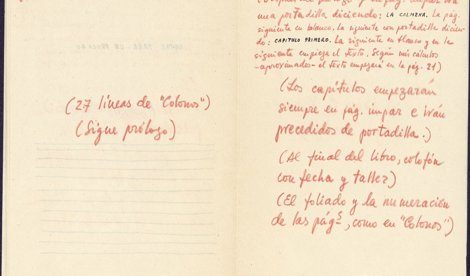 (27 líneas de "Colonos")
(Sigue prólogo)
una portadilla diciendo: LA COLMENA. La pág.
siguiente en blanco, la siguiente con portadilla dicien
do: CAPITULO PRIMERO. La siguiente en blanco y en la
siguiente empieza el texto. Según mis cálculos
-aproximados- el texto empezará en la pág. 21)
(Los capítulos empezarán
siempre en pág. impar e irán
precedidos de portadilla.)
(Al final del libro, colofón
con fecha y taller)
(El foliado y la numeración
de las págs, como en "Colonos")